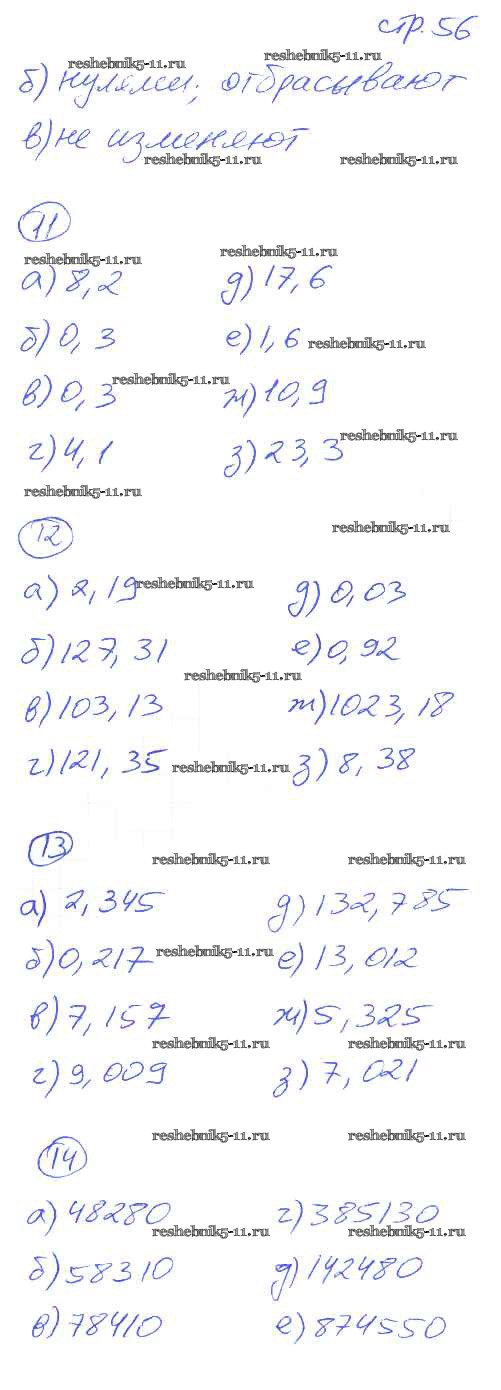 стр. 56
reshebnik5-11.ru reshebnik5-11.ru
б) нулями; отбрасывают
в) не изменяют
reshebnik5-11.ru reshebnik5-11.ru
11
reshebnik5-11.ru reshebnik5-11.ru
а) 8,2 д) 17,6
б) 0,3 е) 1,6 reshebnik5-11.ru
reshebnik5-11.ru
в) 0,3 ж) 10,9
reshebnik5-11.ru
г) 4,1 з) 23,3
reshebnik5-11.ru
12 reshebnik5-11.ru
а) 2,19 reshebnik5-11.ru д) 0,03
б) 127,31 е) 0,92
reshebnik5-11.ru
в) 103,13 ж) 1023,18
г) 121,35 reshebnik5-11.ru з) 8,38
13 reshebnik5-11.ru reshebnik5-11.ru
а) 2,345 д) 132,785
б) 0,217 reshebnik5-11.ru е) 13,012
в) 7,157 ж) 5,325
reshebnik5-11.ru reshebnik5-11.ru
г) 9,009 з) 7,021
reshebnik5-11.ru reshebnik5-11.ru
14
а) 48280 г) 385130
reshebnik5-11.ru reshebnik5-11.ru
б) 58310 д) 142480
в) 78410 е) 874550